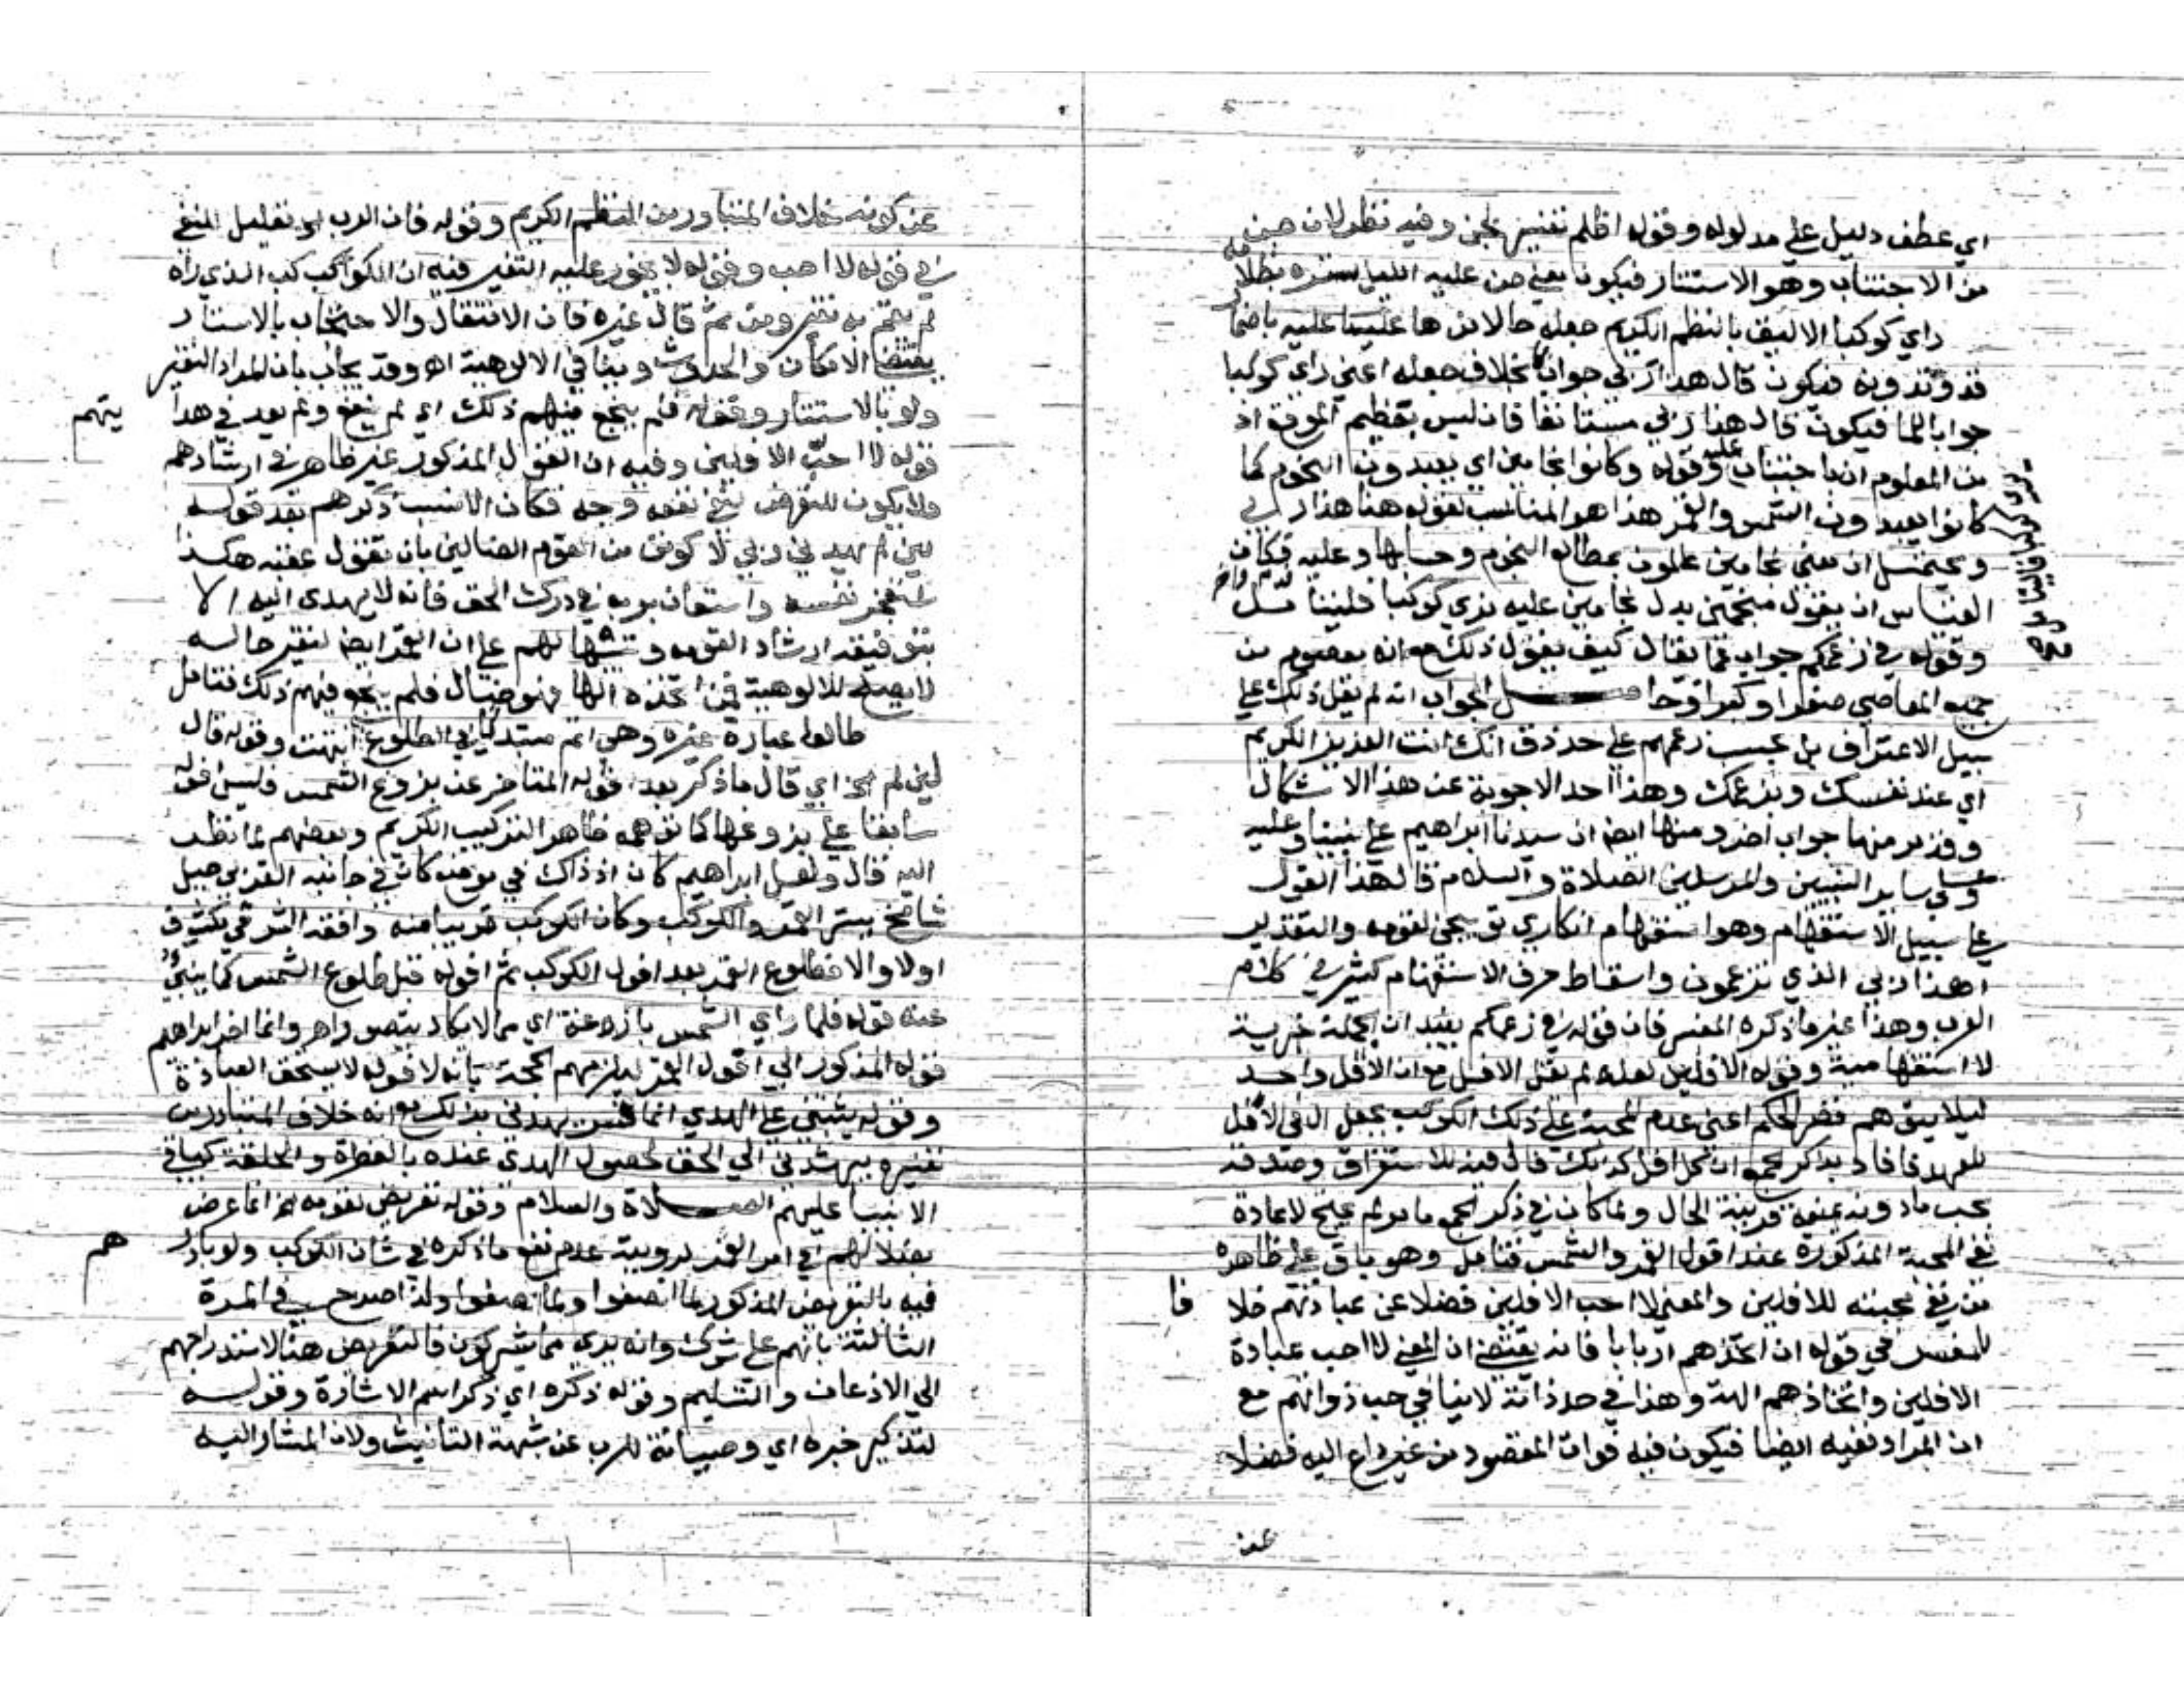 اي عطف دليل علي مدلوله وقوله اظلم تفسير لجن وفيه نظر لان جن
من الاجتنان وهو الاستتار فيكون معني جن عليه الليل ستره بظلا
راي كوكبا الاليق بالنظم الكريم جعله حالا من ها عليها عليه باضما
قد وبدونه فيكون قال هذا ربي جوابا بخلاف جعله اعني راي كوكبا
جوابا للما فيكون قال هذا ربي مستانفا فان ليس بتعظيم الموقع اذ
من المعلوم ان وقوله وكانوا نجامين اي يعبدون النجوم كما
كانوا يعبدون الشمس والقمر هذا هو المناسب لقوله هنا هذا ربي
ويحتمل ان معني نجامين عالمون بمطالع النجوم وحسابها وعليه فكان
القياس ان يقول منجمين بدل نجامين عليه
وقوله في زعمكم جواب عما يقال كيف يقول ذلك مع انه معصوم من
جميع المعاصي صغرا وكبرا وحاصل الجواب انه لم يقل ذلك علي
سبيل الاعتراف بل بحسب زعمهم علي حد ذق انك انت العزيز الكريم
اي عند نفسك وبزعمك وهذا احد الاجوبة عن هذا الاشكال
جواب اخر ومنها ايضا ان سيدنا ابراهيم علي نبينا وعليه
وعلي ساير النبيين والمرسلين الصلاة والسلام قال هذا القول
علي سبيل الاستفهام وهو استفهام انكاري توبيخي لقومه والتقدير
اهذا ربي الذي تزعمون واسقاط حرف الاستفهام كثير في كلام
العرب وهذا غير ما ذكره المفسر فان قوله في زعمكم يفيد ان الجملة خبرية
لا استفهامية وقوله الافلين لعله لم يقل الافل مع ان الافل واحد
ليلا يتوهم قصر الحكم اعني عدم المحبة علي ذلك الكوكب بجعل ال في الافل
للعهد فافاد بذكر الجمع ان كل افل كذلك فال فيه للاستغراق وصدقه
بحب ما دونه يمنعه قرينة الحال ولما كان في ذكر الجمع ما مر لم يحتج لاعادة
نفي المحبة المذكورة عند افول القمر والشمس فتامل وهو باق علي ظاهره
من نفي محبته للافلين والمعني لا احب الافلين فضلا عن عبادتهم خلافا
للمفسر في قوله ان اتخذهم اربابا فانه يقتضي ان المعني لا احب عبادة
الافلين واتخاذهم الهة وهذا في حد ذاته لا ينافي حب ذواتهم مع
ان المراد نفيه ايضا فيكون فيه فوات المقصود من غير داع اليه فضلا
عن
عن كونه خلاف المتبادر من النظم الكريم وقوله فان الرب الخ تعليل للنفي
في قوله لا احب وقوله لا يجوز عليه التغير فيه ان الكوكب الذي راه
لم يقم به تغير ومن ثم قال غيره فان الانتقال والاحتجاب بالاستتار
يقتضي الامكان والحدوث وينافي الالوهية اه وقد يجاب بان المراد التغير
ولو بالاستتار وقوله فلم ينجع فيهم ذلك اي لم ينفع ولم يعد في هذا
قوله لا احب الافلين وفيه ان القول المذكور غير ظاهر في ارشادهم
ولا يكون للتعرض نفي نفعه وجه فكان الانسب ذكرهم بعد قوله
لين لم يهدني ربي لاكونن من القوم الضالين بان يقول عقبه هكذا
نفسه واستعان بربه في درك الحق فانه لا يهدي اليه الا
بتوفيقه ارشادا لقومه وتنبيها لهم علي ان القمر ايضا لتغير حاله
لا يصلح للالوهية فمن اتخذه الها فهو ضال فلم ينجع فيهم ذلك فتامل
طالعا عبارة غيره وهي اتم مبتديا في الطلوع انتهت وقوله قال
لين لم الخ اي قال ما ذكر بعد افوله المتاخر عن بزوغ الشمس وليس افوله
سابقا علي بزوغها كما توهمه ظاهر التركيب الكريم وبعضهم لما نظر
اليه قال ولعل ابراهيم كان اذ ذاك في موضع كان في جانبه الغربي جبل
شامخ يستر القمر والكوكب وكان الكوكب قريبا منه وافقه الشرقي مكشوف
اولا والا فطلوع القمر بعد افول الكوكب ثم افوله قبل طلوع الشمس كما ينبئ
عنه قوله فلما راي الشمس بازغة اي مما لا يكاد يتصور اه وانما اخر ابراهيم
قوله المذكور الي افول القمر ليلزمهم الحجة بانه لافوله لا يستحق العبادة
وقوله يثبتني علي الهدي انما فسر يهدني بذلك مع انه خلاف المتبادر من
تفسيره بيرشدني الي الحق لحصول الهدي عنده بالفطرة والخلقة كباقي
الانبيا عليهم الصلاة والسلام وقوله تعريض لقومه الخ انما عرض
بضلالهم في امر القمر لرويته عدم نفع ما ذكره في شان الكوكب ولو بادرهم
فيه بالتعريض المذكور لما انصفوا ولما صفوا ولذا صرح في المرة
الثالثة بانهم علي شرك وانه بري مما يشركون فالتعريض هنا لاستدراجهم
الي الاذعان والتسليم وقوله ذكره اي ذكر اسم الاشارة وقوله
لتذكير خبره اي وصيانة للرب عن شبهة التانيث ولان المشار اليه